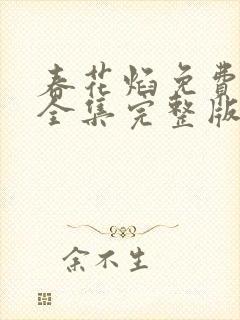 春花焰免費
全集完整版
余不生